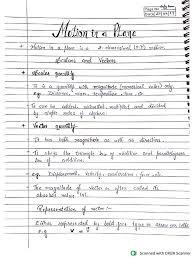 Page No.
Date
Motion in a Plane
• Motion in a plane is a 2-dimensional (2-D) motion
Scalars and Vectors
• Scalar quantity
• It is a quantity with magnitude only
e.g. Distance, mass, temperature, time
• It can be added, subtracted, multiplied and divided
by rules of algebra
• Vector quantity
• It has both magnitude as well as direction.
• It obeys the triangle law of addition and parallelogram
law of addition.
e.g. Displacement, velocity, acceleration, force etc.
• The magnitude of vector is often called its
absolute value.
Representation of vector :-
Either represented by bold face type or
Scanned with OKEN Scanner